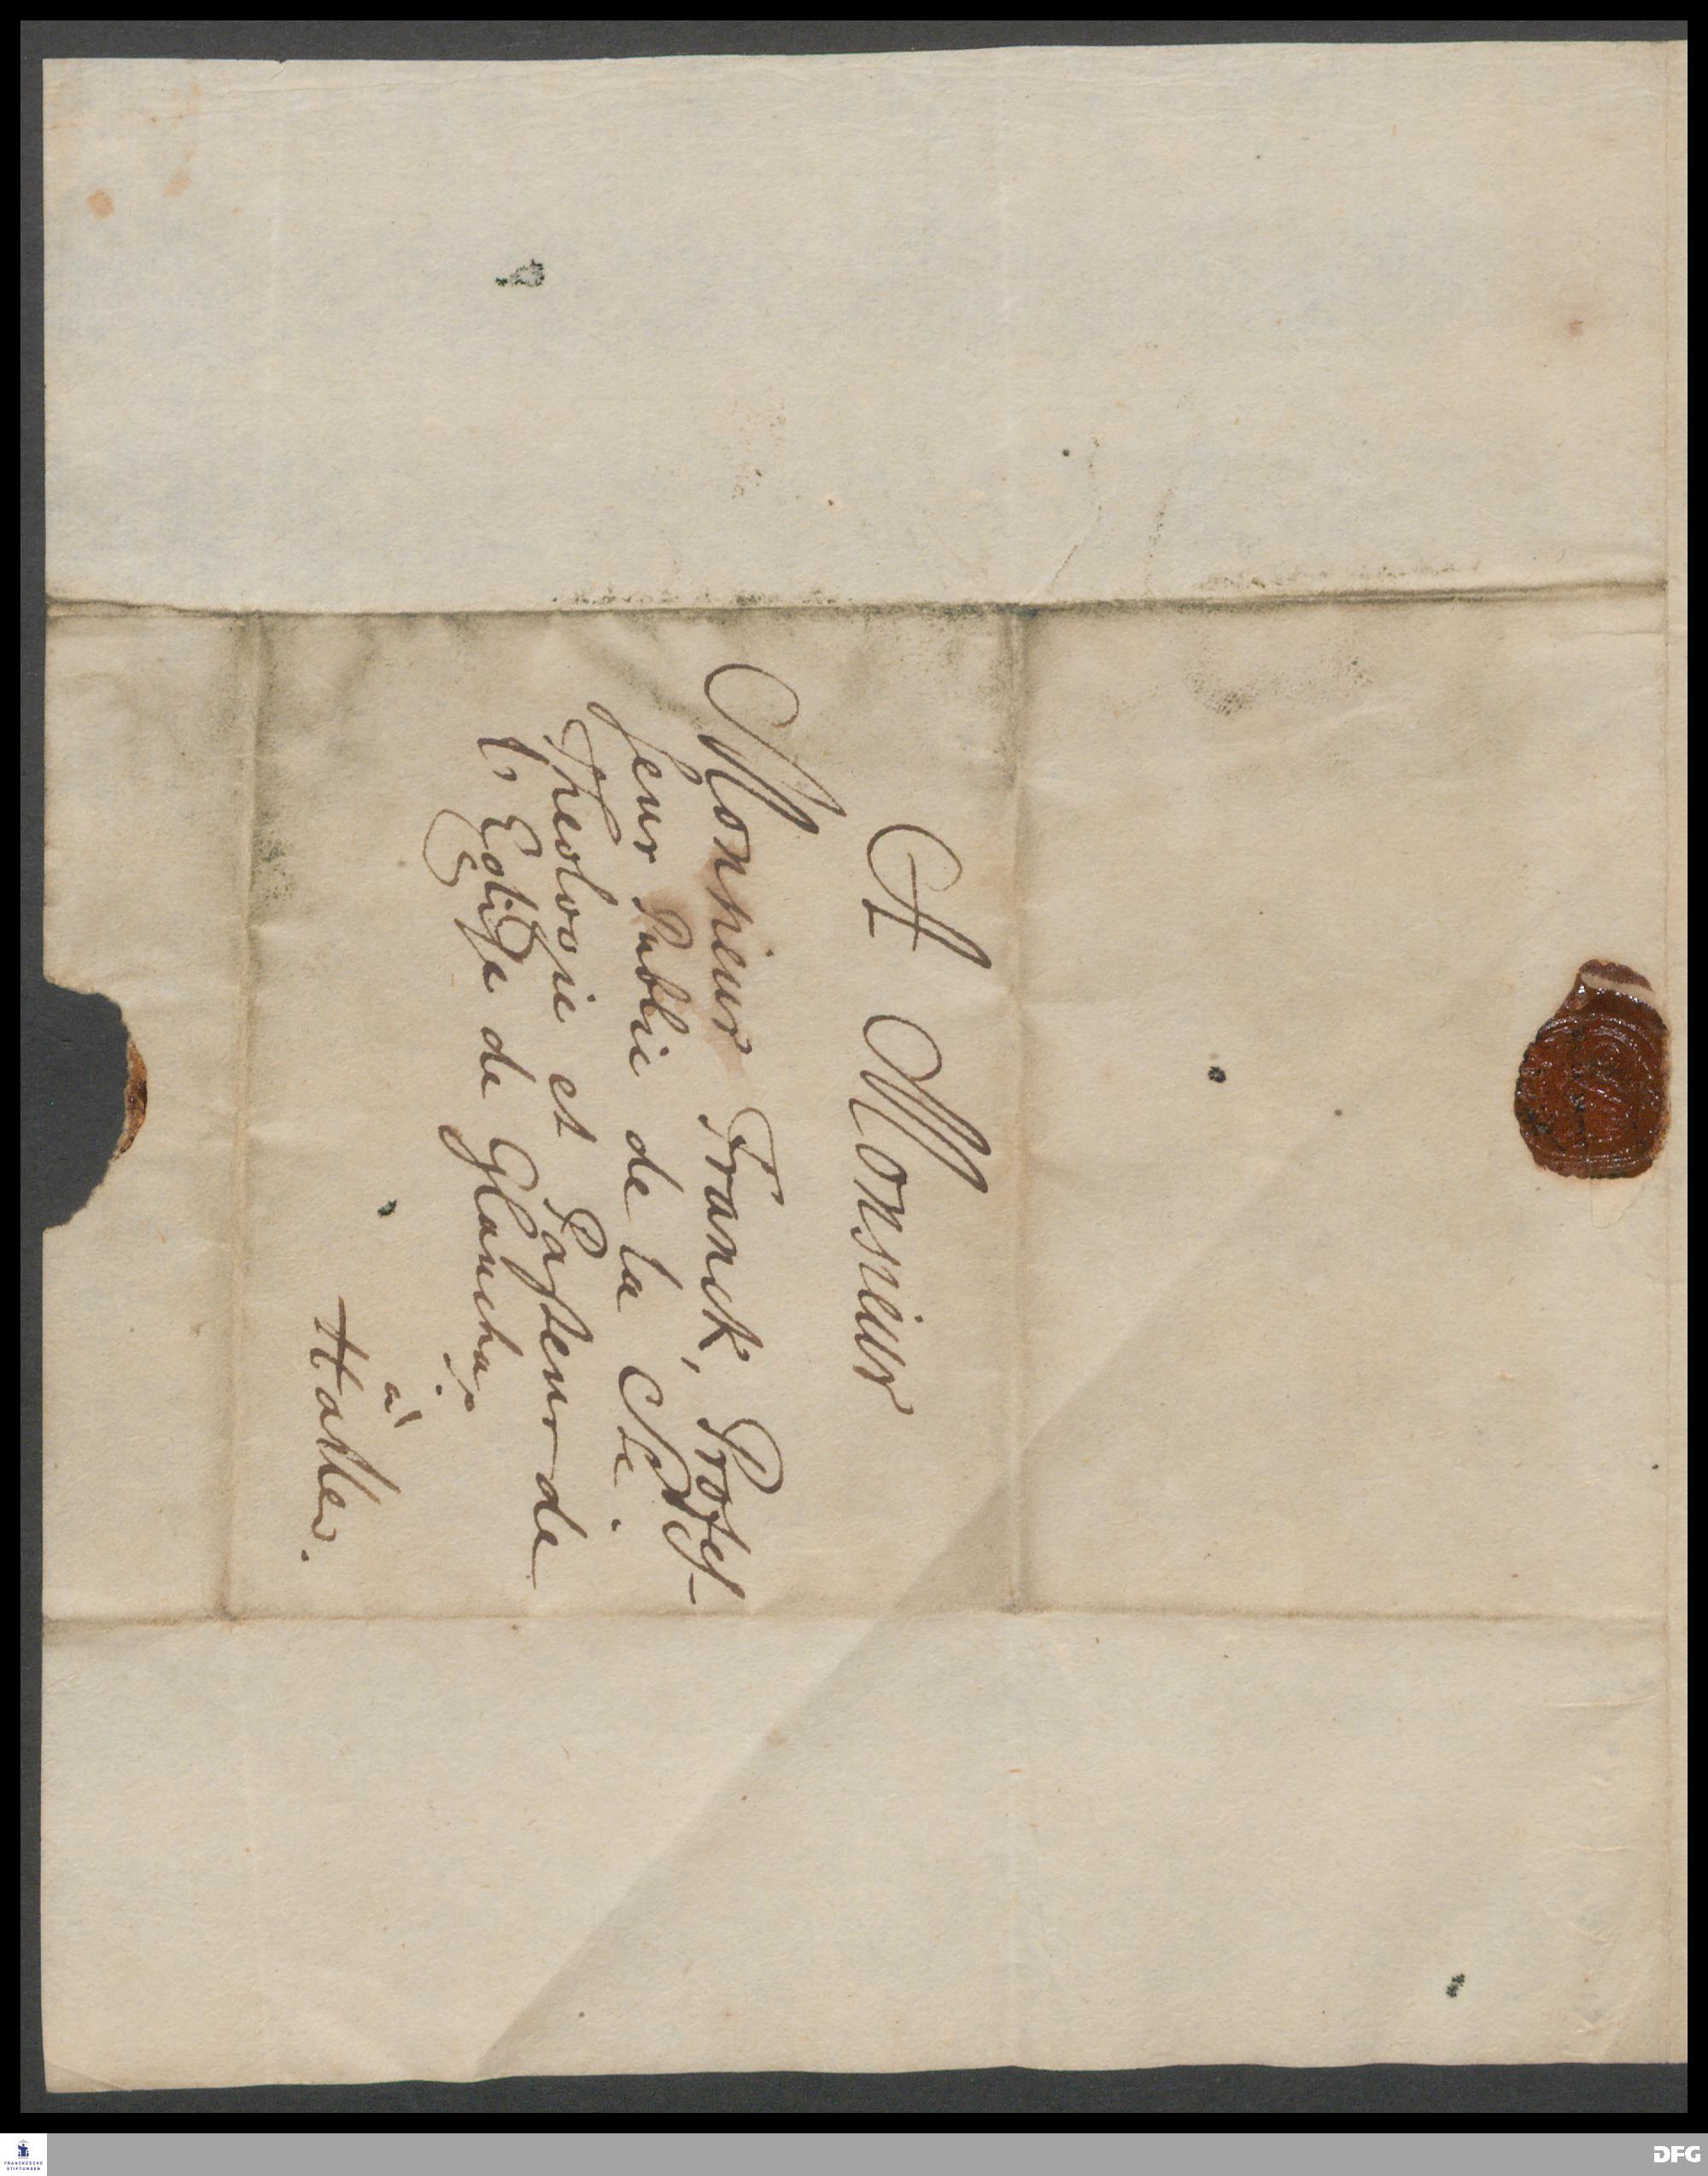 A Monsieur
Monsieur Franck, Profes-
seur Public de la Ste.
Theologie et Pasteur de
l'Eglise de Glaucha,
à
Halle.
FRANCKESCHE
STIFTUNGEN
DFG